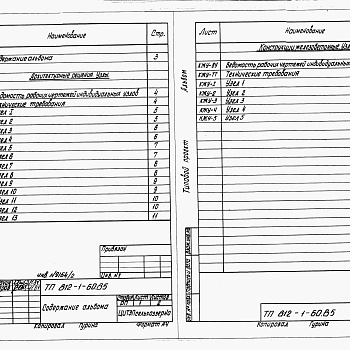 Наименование Стр.
одержание альбома 3
Архитектурные решения. Узлы
едомость рабочих чертежей индивидуальных узлов 4
ехнические требования 4
зел 1 5
зел 2 5
зел 3 6
зел 4 6
зел 5 7
зел 6 7
зел 7 8
зел 8 8
зел 9 9
зел 10 9
зел 11 10
зел 12 10
зел 13 11
Привязан
Инв. №
инв №9164/2
ТП 812-1-60.85
Содержание альбома
Стадия Лист Листов
РП 1 2
Копировал Гурина Формат А4
Альбом
Типовой проект
Лист Наименование
Конструкции железобетонные Узл
КЖУ-ВЧ Ведомость рабочих чертежей индивидуальн
КЖУ-ТТ Технические требования
КЖУ-1 Узел 1
КЖУ-2 Узел 2
КЖУ-3 Узел 3
КЖУ-4 Узел 4
КЖУ-5 Узел 5
ТП 812-1-60.85
Копировал Гурина